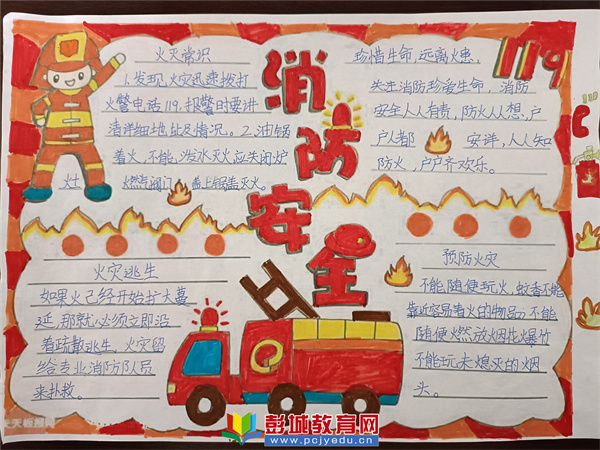 消防安全
119
火灾常识
1.发现火灾迅速拨打
火警电话119,报警时要讲
清详细地址及情况。2.油锅
着火,不能泼水灭火应关闭炉
灶 燃气阀门 盖上锅盖灭火。
珍惜生命,远离火患,
关注消防珍爱生命,消防
安全人人有责,防火从想,户
户人都 安详,人人知
防火,户户齐欢乐。
火灾逃生
如果火已经开始扩大蔓
延,那就必须立即沿
着疏散逃生,火灾留
给专业消防队员
来扑救。
预防火灾
不能随便玩火,蚊香不能
靠近容易着火的物品,不能
随便燃放烟花爆竹
不能玩未熄灭的烟
头。
彭城教育网
www.pcjyedu.cn